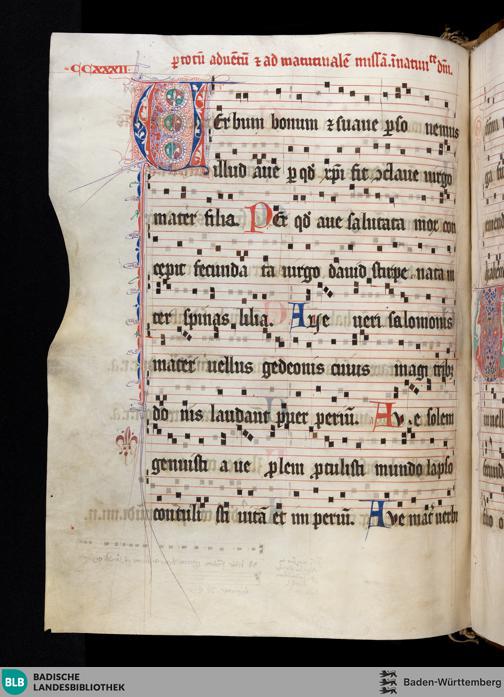 CCXXXII
p totū aduētū ⁊ ad matutinalē missā
VErbum bonum ⁊ suaue pso nemus
illud aue p qd xpi fit ↄclaue uirgo
mater filia. Per qd aue salutata mox con
cepit fecunda ta uirgo dauid stirpe nata in
ter spinas lilia. Aue ueri salomonis
mater uellus gedeonis cuius magi trib;
do nis laudant puer periū. Aue solem
genuisti aue plem ptulisti mundo lapso
contuli sti uitā et im periū. Aue mat uerbi
BLB BADISCHE
LANDESBIBLIOTHEK
Baden-Württemberg